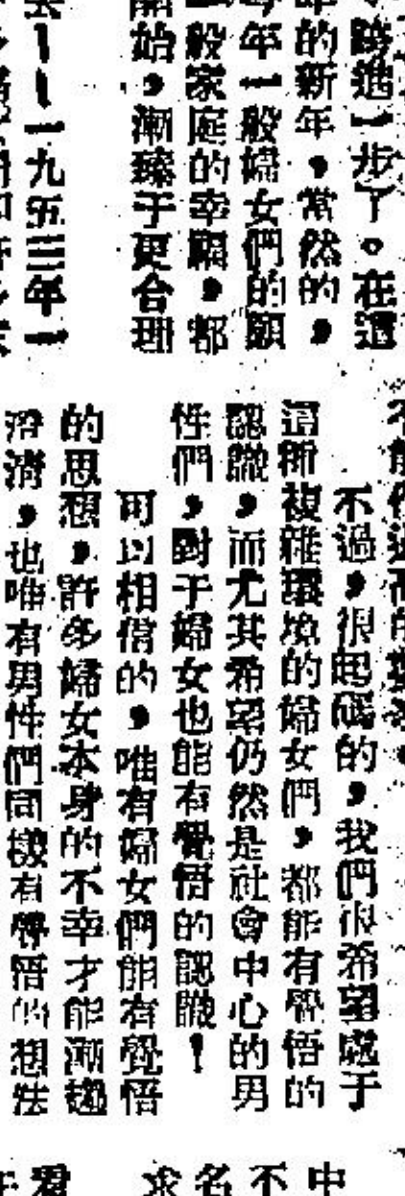 跨進一步了。在這
年的新年，當然的，
每年一般婦女們的願
一般家庭的幸福，都
開始，漸臻于更合理
一九五三年一
不過，很起碼的，我們很希望處于
這所複雜環境的婦女們，都能有覺悟的
認識，而尤其希望仍然是社會中心的男
性們，對于婦女也能有覺悟的認識！
可以相信的，唯有婦女們能有覺悟
的思想，許多婦女本身的不幸才能漸趨
澄清，也唯有男性們同樣有覺悟的想法
中
不
名
求
君